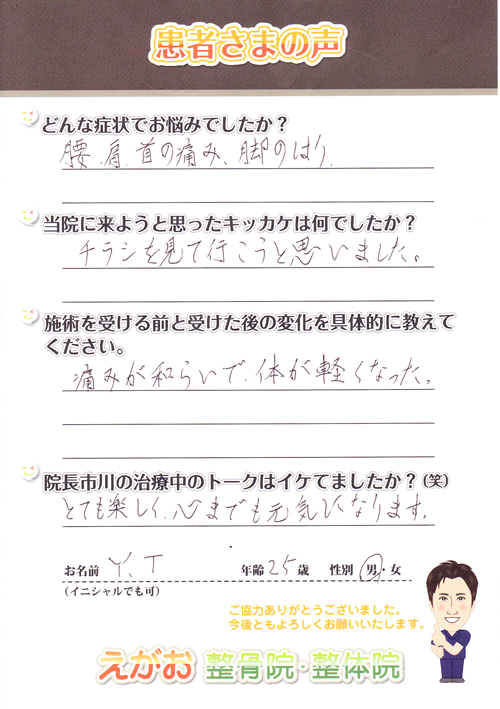 患者さまの声
どんな症状でお悩みでしたか？
腰、肩、首の痛み、脚のはり.
当院に来ようと思ったキッカケは何でしたか？
チラシを見て行こうと思いました。
施術を受ける前と受けた後の変化を具体的に教えて
ください。
痛みが和らいで、体が軽くなった。
院長市川の治療中のトークはイケてましたか？(笑)
とても楽しく、心までも元気になります。
お名前 Y. T 年齢 25 歳 性別 男・女
(イニシャルでも可)
ご協力ありがとうございました。
今後ともよろしくお願いいたします。
えがお 整骨院・整体院